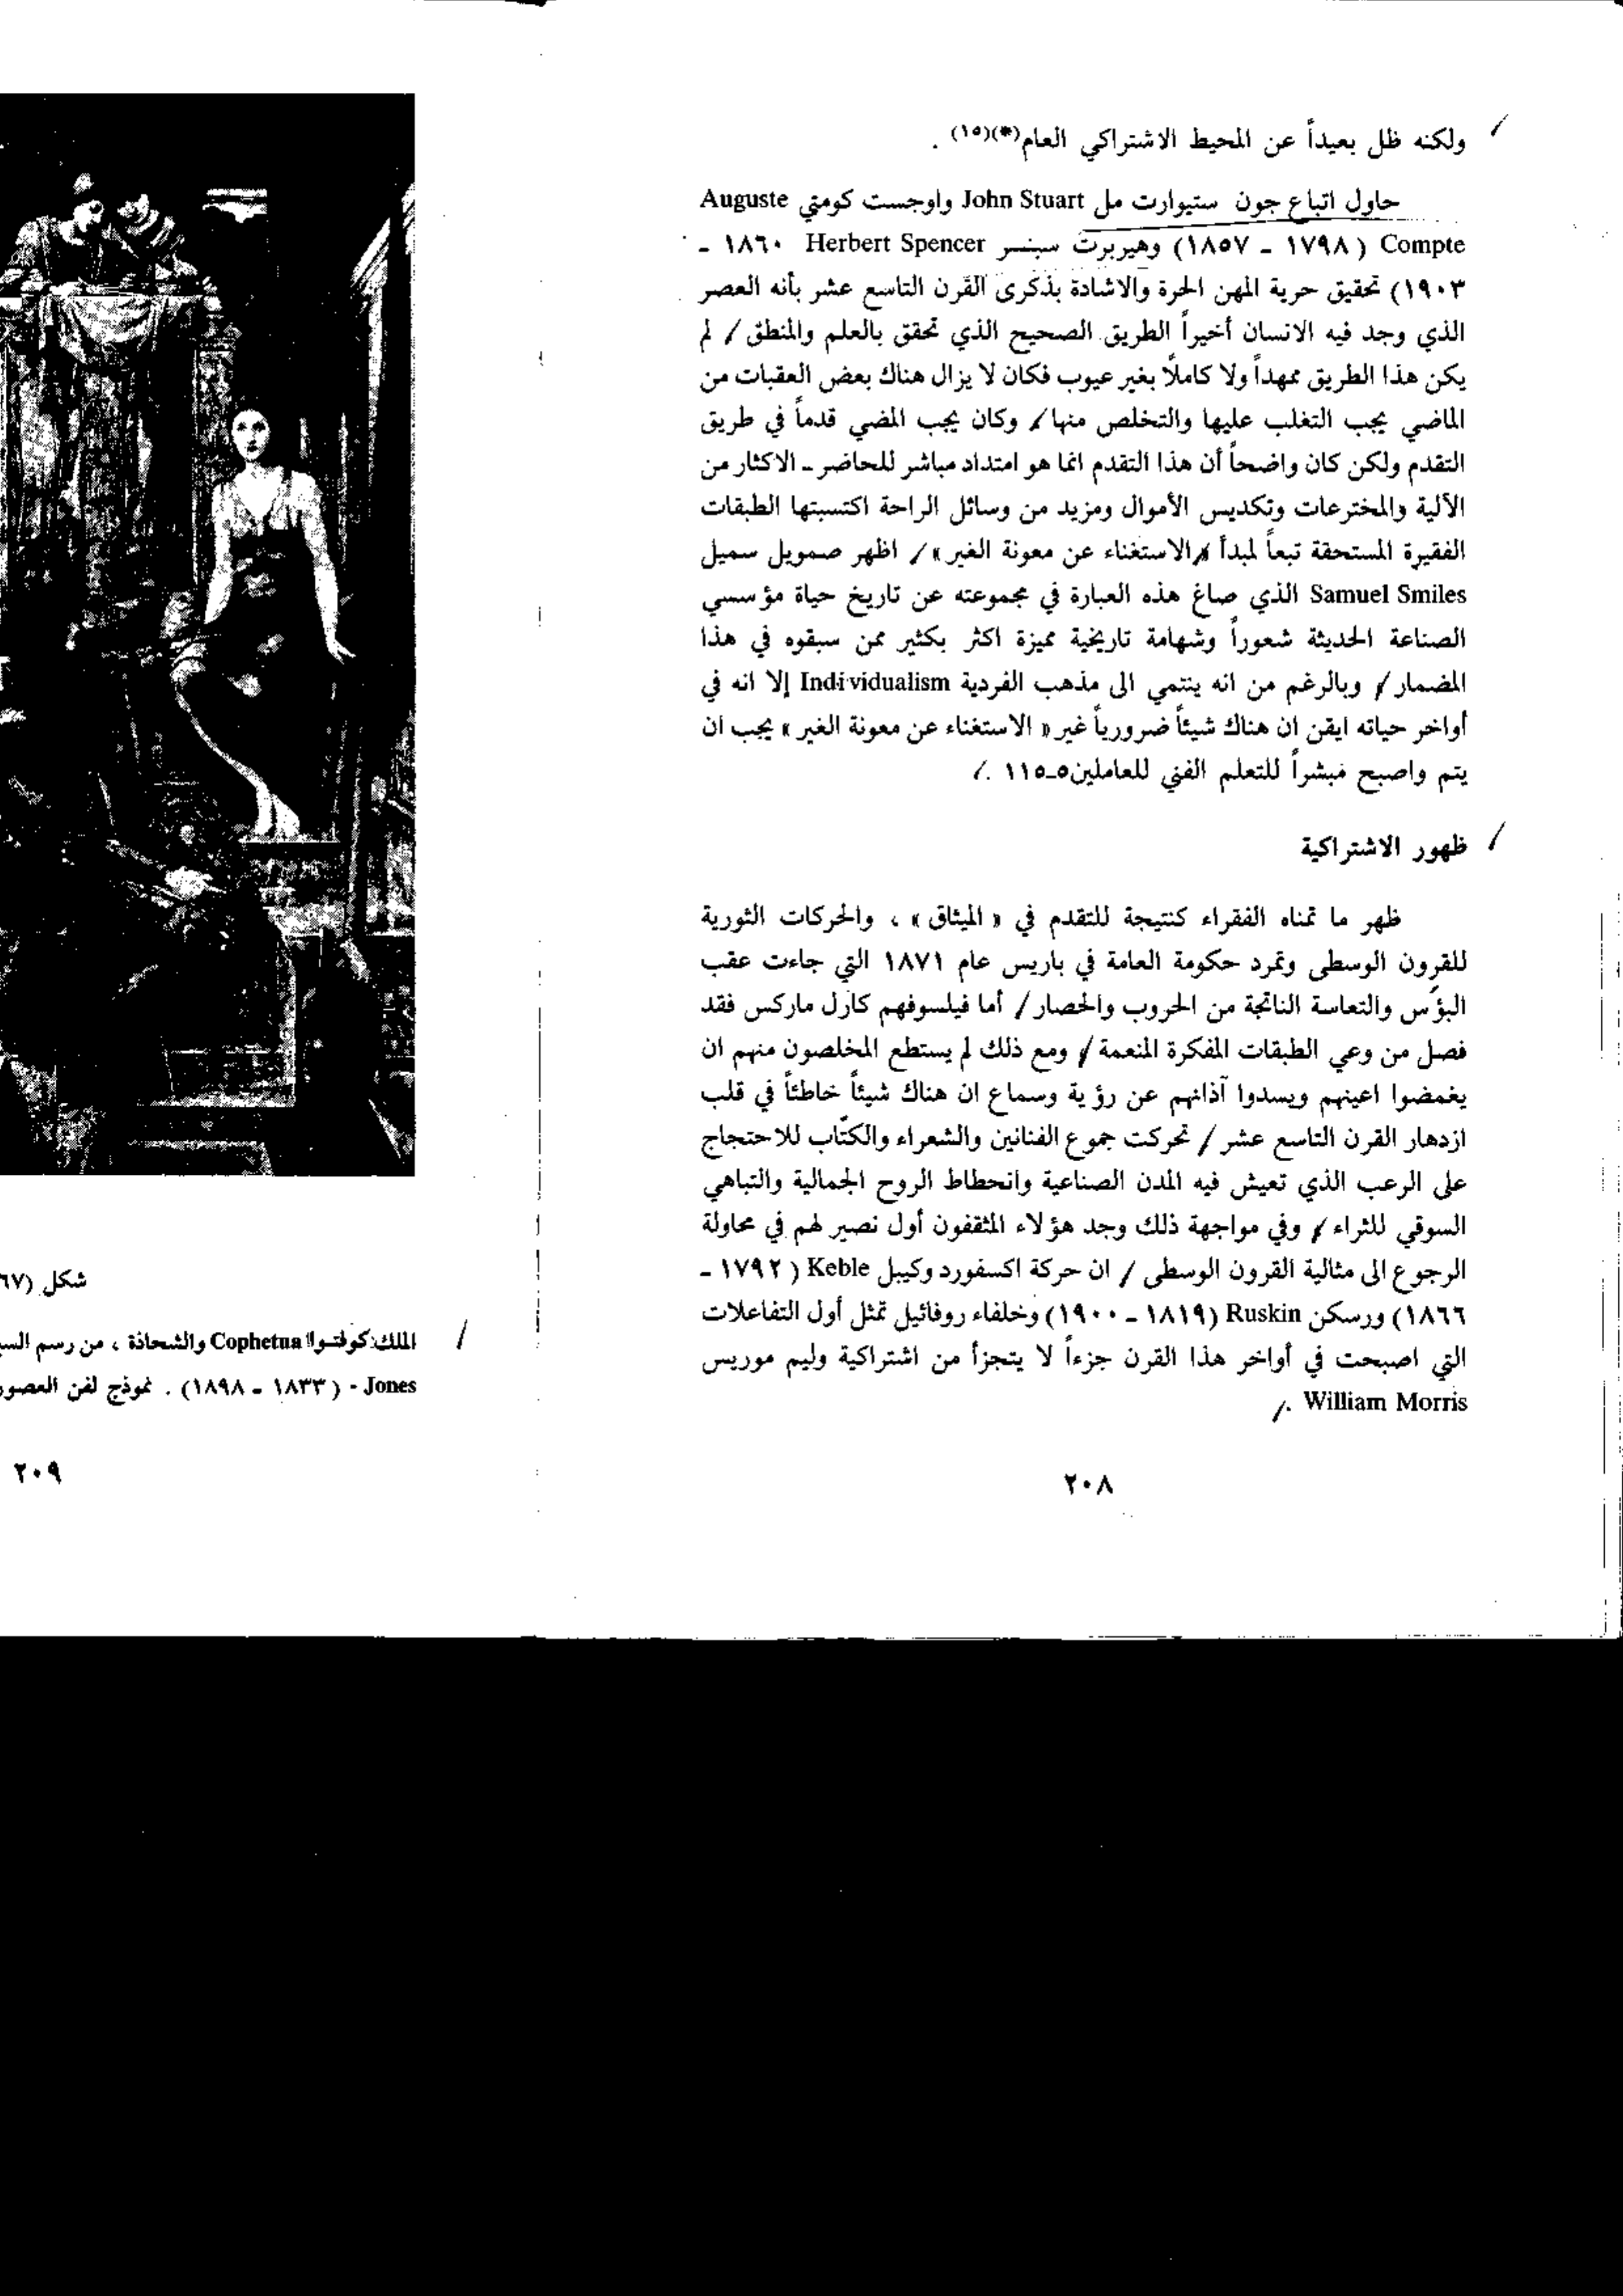 ولكنه ظل بعيداً عن المحيط الاشتراكي العام(*)(١٥) .
حاول اتباع جون ستيوارت مل John Stuart واوجست كومتي Auguste
Compte ( ١٧٩٨ - ١٨٥٧) وهيربرت سبنسر Herbert Spencer ١٨٦٠ -
١٩٠٣) تحقيق حرية المهن الحرة والاشادة بذكرى القرن التاسع عشر بأنه العصر
الذي وجد فيه الانسان أخيراً الطريق الصحيح الذي تحقق بالعلم والمنطق / لم
يكن هذا الطريق ممهداً ولا كاملاً بغير عيوب فكان لا يزال هناك بعض العقبات من
الماضي يجب التغلب عليها والتخلص منها / وكان يجب المضي قدماً في طريق
التقدم ولكن كان واضحاً أن هذا التقدم انما هو امتداد مباشر للحاضر - الاكثار من
الآلية والمخترعات وتكديس الأموال ومزيد من وسائل الراحة اكتسبتها الطبقات
الفقيرة المستحقة تبعاً لمبدأ « الاستغناء عن معونة الغير » / اظهر صمويل سميل
Samuel Smiles الذي صاغ هذه العبارة في مجموعته عن تاريخ حياة مؤسسي
الصناعة الحديثة شعوراً وشهامة تاريخية مميزة اكثر بكثير ممن سبقوه في هذا
المضمار / وبالرغم من انه ينتمي الى مذهب الفردية Individualism إلا انه في
أواخر حياته ايقن ان هناك شيئاً ضرورياً غير « الاستغناء عن معونة الغير » يجب ان
يتم واصبح مبشراً للتعلم الفني للعاملين٥-١١٥ . /
ظهور الاشتراكية
ظهر ما تمناه الفقراء كنتيجة للتقدم في « الميثاق » ، والحركات الثورية
للقرون الوسطى وتمرد حكومة العامة في باريس عام ١٨٧١ التي جاءت عقب
البؤس والتعاسة الناتجة من الحروب والحصار / أما فيلسوفهم كارل ماركس فقد
فصل من وعي الطبقات المفكرة المنعمة / ومع ذلك لم يستطع المخلصون منهم ان
يغمضوا اعينهم ويسدوا آذانهم عن رؤية وسماع ان هناك شيئاً خاطئاً في قلب
ازدهار القرن التاسع عشر / تحركت جموع الفنانين والشعراء والكتّاب للاحتجاج
على الرعب الذي تعيش فيه المدن الصناعية وانحطاط الروح الجمالية والتباهي
السوقي للثراء / وفي مواجهة ذلك وجد هؤلاء المثقفون أول نصير لهم في محاولة
الرجوع الى مثالية القرون الوسطى / ان حركة اكسفورد وكيبل Keble ( ١٧٩٢ -
١٨٦٦) ورسكن Ruskin (١٨١٩ - ١٩٠٠) وخلفاء روفائيل تمثل أول التفاعلات
التي اصبحت في أواخر هذا القرن جزءاً لا يتجزأ من اشتراكية وليم موريس
William Morris . /
٢٠٨
شكل (٦٧
الملك كوفتوا Cophetua والشحاذة ، من رسم
Jones - ( ١٨٣٣ - ١٨٩٨) . نموذج لفن
٢٠٩